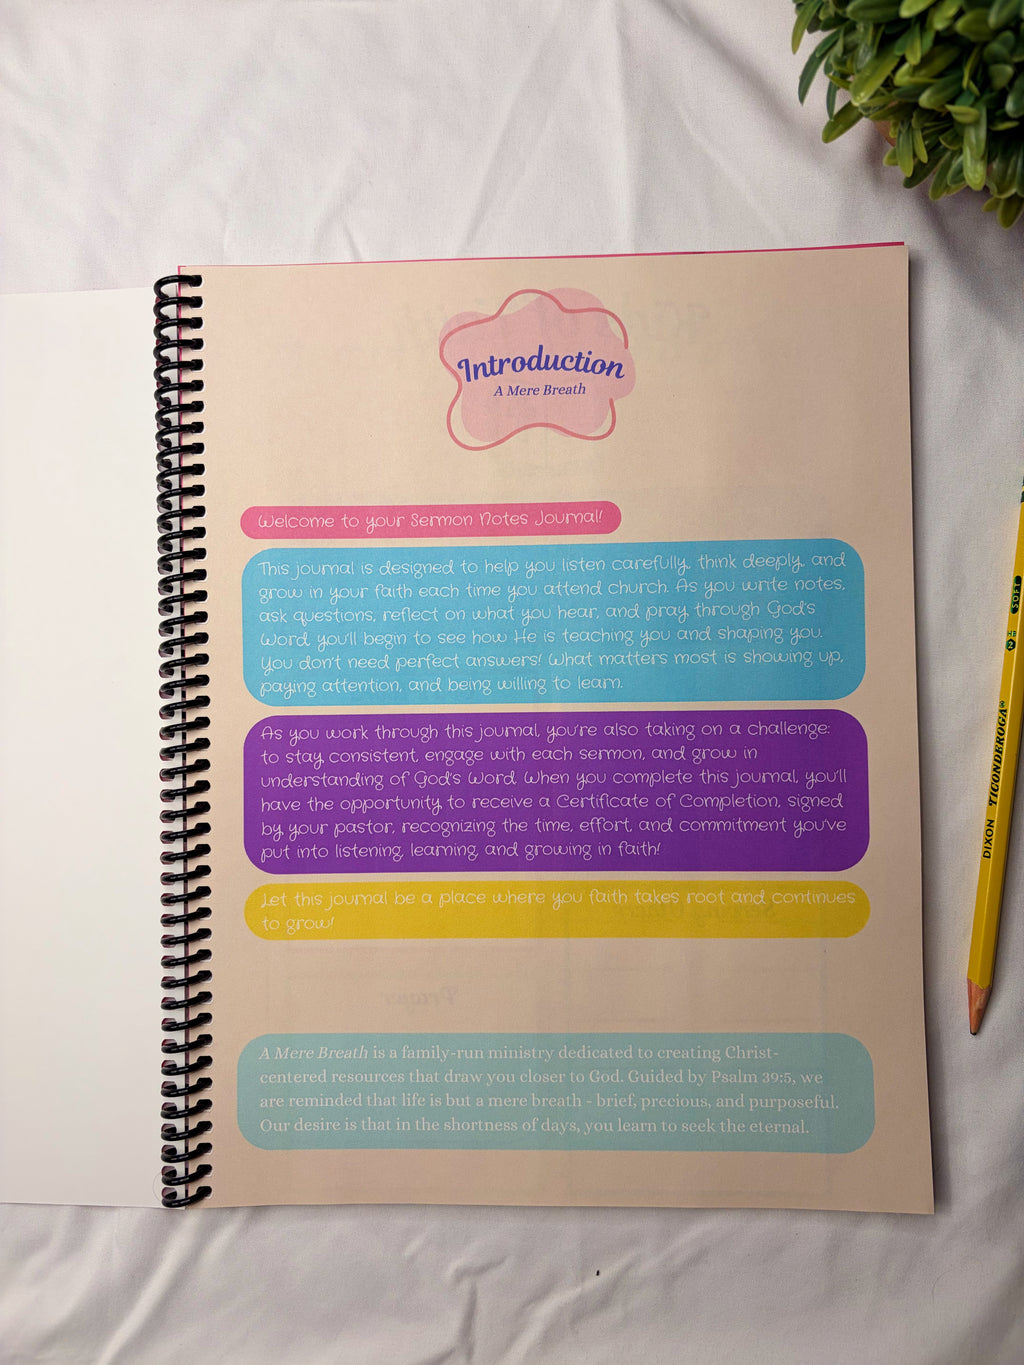 Introduction
A Mere Breath
Welcome to your Sermon Notes Journal!
This journal is designed to help you listen carefully, think deeply, and
grow in your faith each time you attend church. As you write notes,
ask questions, reflect on what you hear, and pray through God's
Word, you'll begin to see how He is teaching you and shaping you.
You don't need perfect answers! What matters most is showing up,
paying attention, and being willing to learn.
As you work through this journal, you're also taking on a challenge:
to stay consistent, engage with each sermon, and grow in
understanding of God's Word. When you complete this journal, you'll
have the opportunity to receive a Certificate of Completion, signed
by your pastor, recognizing the time, effort, and commitment you've
put into listening, learning, and growing in faith!
Let this journal be a place where you faith takes root and continues
to grow!
Prayer
A Mere Breath is a family-run ministry dedicated to creating Christ-
centered resources that draw you closer to God. Guided by Psalm 39:5, we
are reminded that life is but a mere breath - brief, precious, and purposeful.
Our desire is that in the shortness of days, you learn to seek the eternal.
DIXON TICONDEROGA® 2 HB SOFT